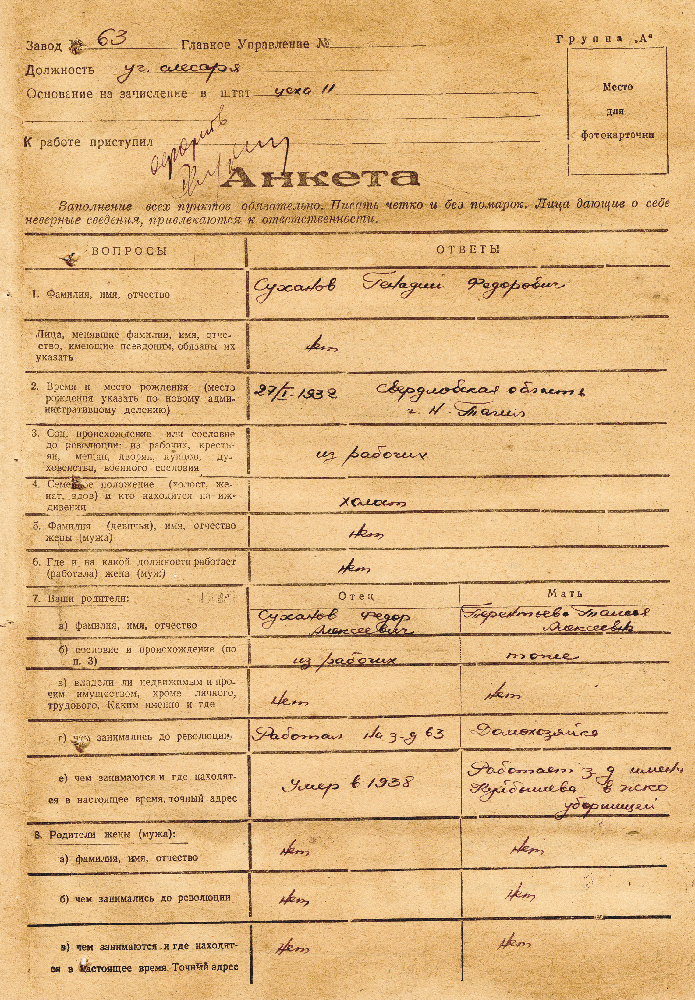 Завод № 63 Главное Управление №
Группа „А“
Должность уч. слесаря
Основание на зачисление в штат цеха 11
Место
для
фотокарточки
К работе приступил
оформить
Анкета
Заполнение всех пунктов обязательно. Писать четко и без помарок. Лица дающие о себе
неверные сведения, привлекаются к ответственности.
ВОПРОСЫ ОТВЕТЫ
1. Фамилия, имя, отчество Суханов Генадий Федорович
Лица, менявшие фамилии, имя, отче-
ство, имеющие псевдоним, обязаны их
указать
нет
2. Время и место рождения (место
рождения указать по новому адми-
нистративному делению)
27/I-1932 Свердловская область
г. Н-Тагил
3. Соц. происхождение или сословие
до революции: из рабочих, кресть-
ян, мещан, дворян, купцов, ду-
ховенства, военного сословия
из рабочих
4. Семейное положение (холост, же-
нат, вдов) и кто находится на иж-
дивении
холост
5. Фамилия (девичья), имя, отчество
жены (мужа)
нет
6. Где и на какой должности работает
(работала) жена (муж)
нет
7. Ваши родители: Отец Мать
а) фамилия, имя, отчество
Суханов Федор
Алексеевич
Терентьева Таисия
Алексеевна
б) сословие и происхождение (по
п. 3)
из рабочих тоже
в) владели ли недвижимым и про-
чим имуществом, кроме личного,
трудового. Каким именно и где
нет нет
г) чем занимались до революции,
Работал на з-д 63 Домохозяйка
е) чем занимаются и где находят-
ся в настоящее время, точный адрес
Умер в 1938
Работает з-д имени
Куйбышева в жко
уборщицей
8. Родители жены (мужа):
а) фамилия, имя, отчество
нет нет
б) чем занимались до революции
нет нет
в) чем занимаются и где находят-
ся в настоящее время. Точный адрес
нет нет